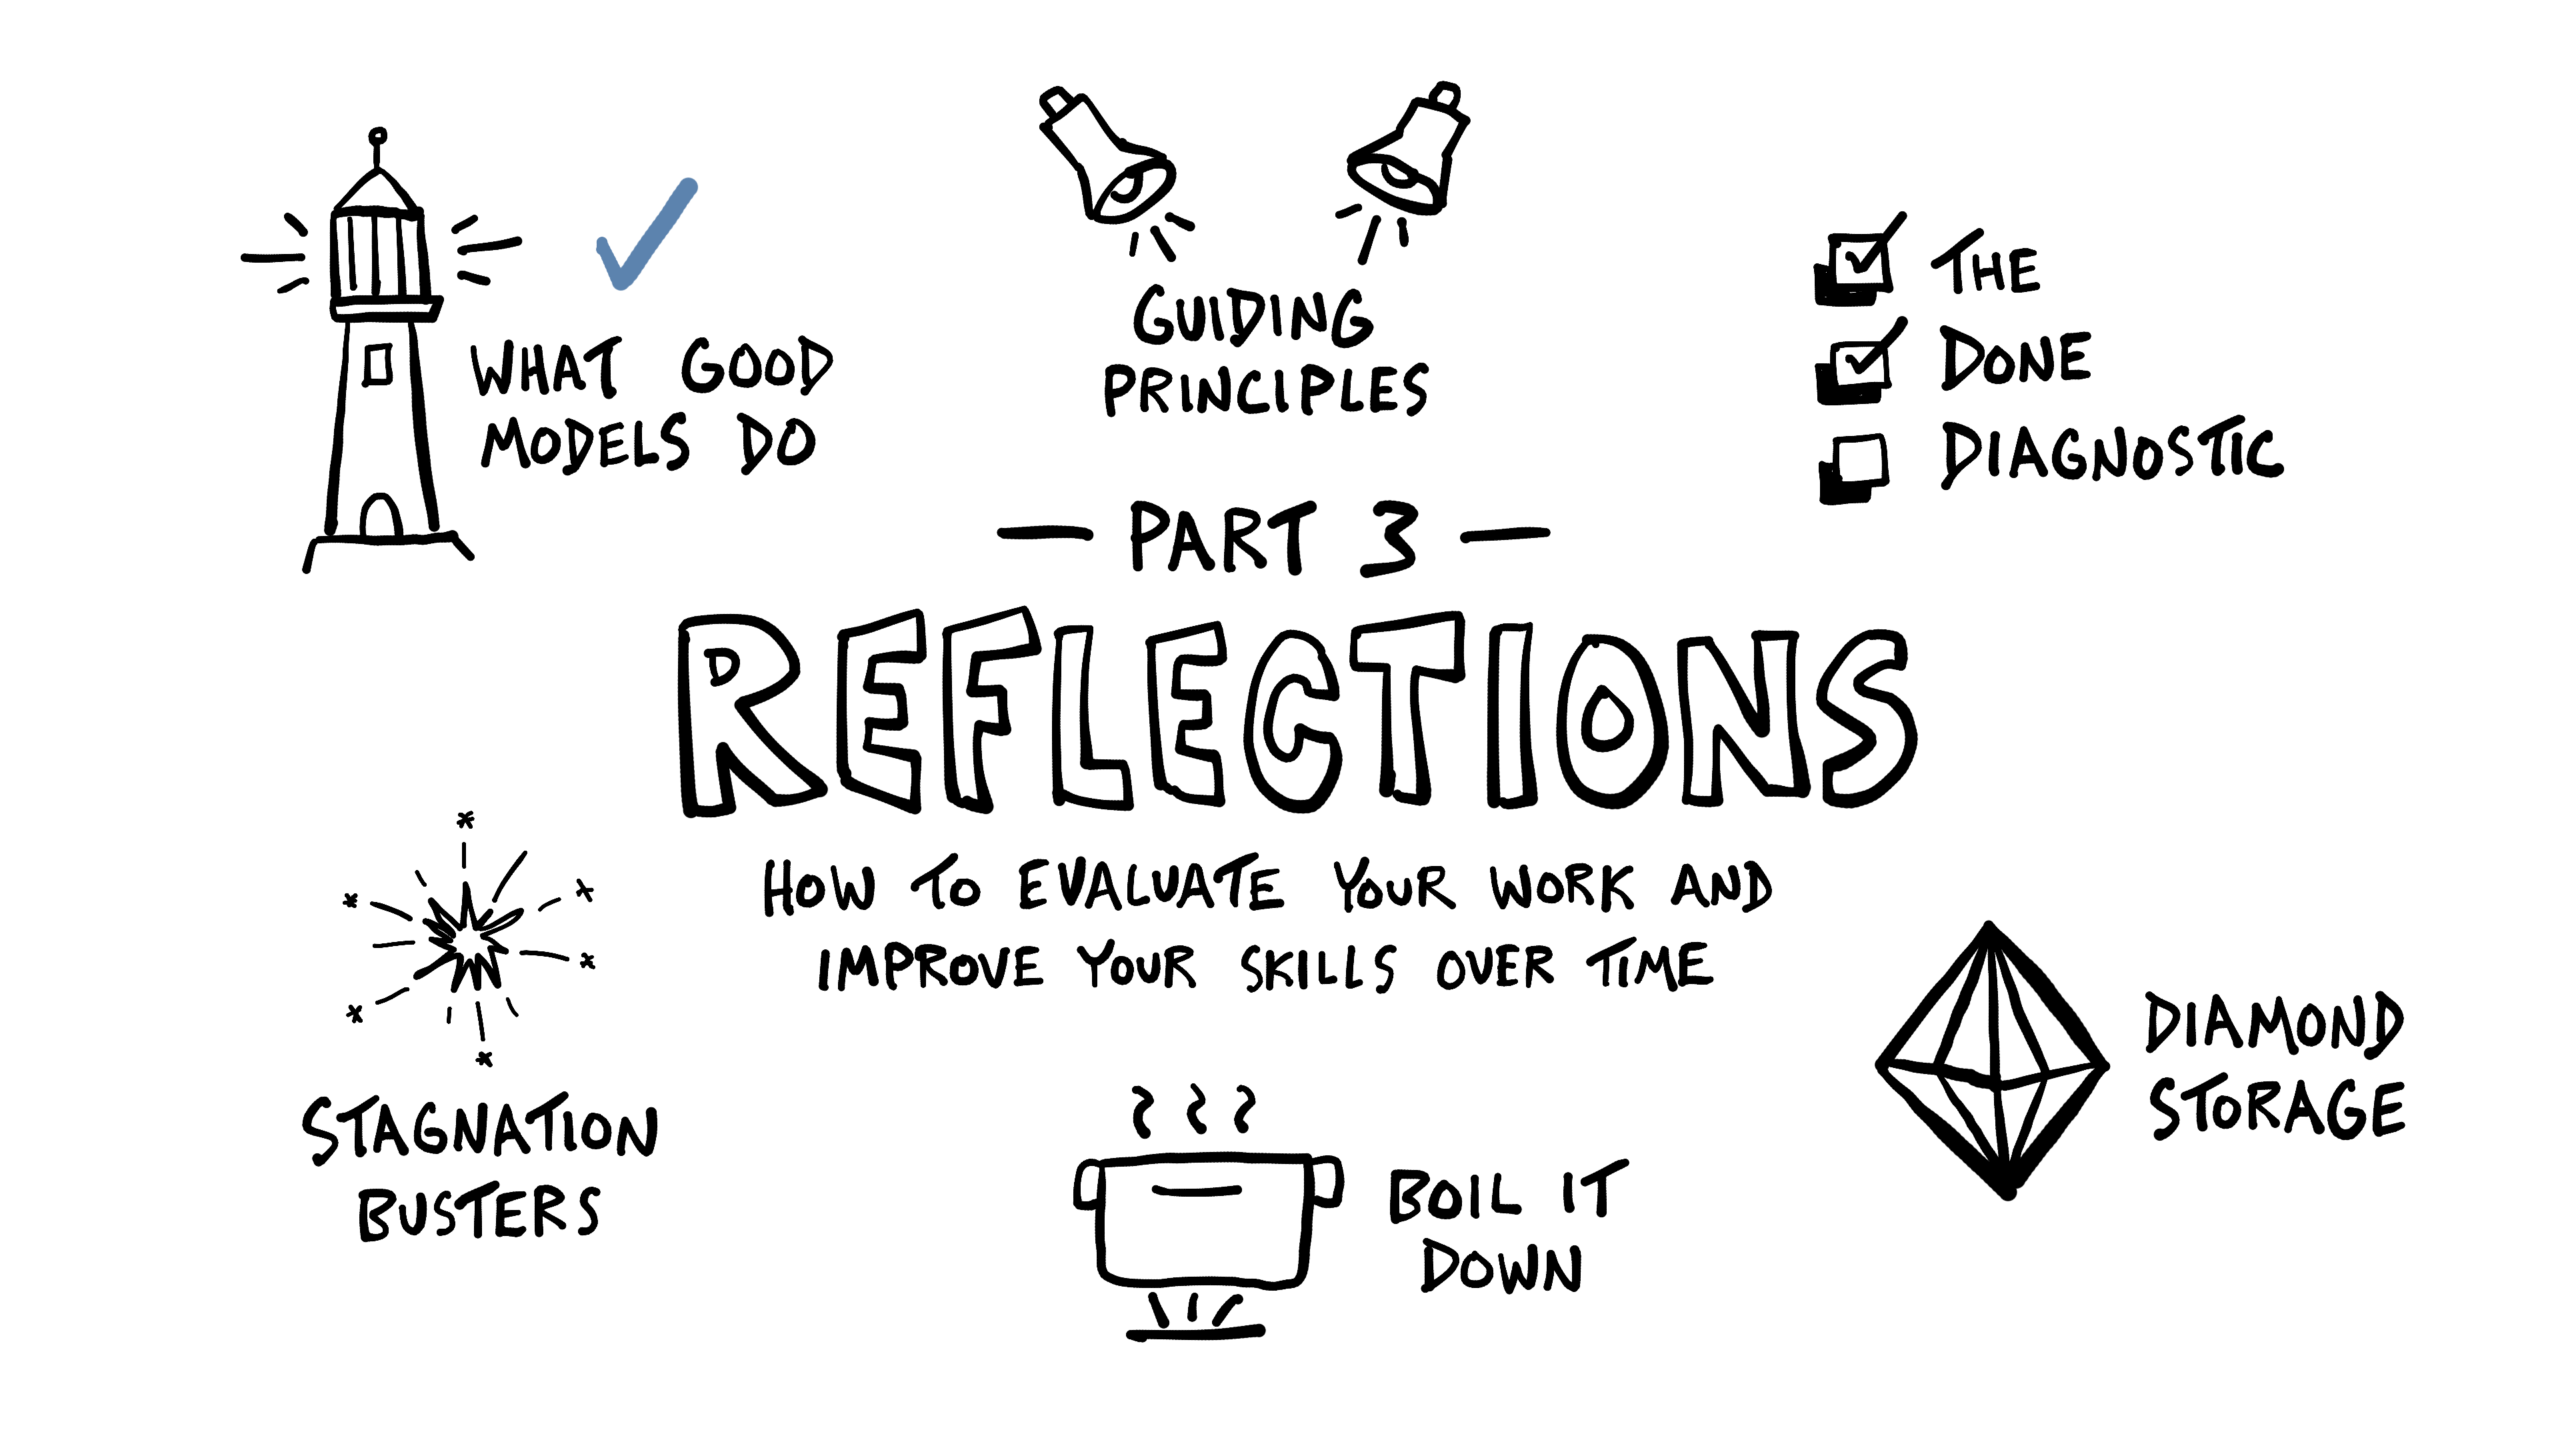 WHAT GOOD
MODELS DO
GUIDING
PRINCIPLES
THE
DONE
DIAGNOSTIC
— PART 3 —
REFLECTIONS
HOW TO EVALUATE YOUR WORK AND
IMPROVE YOUR SKILLS OVER TIME
STAGNATION
BUSTERS
BOIL IT
DOWN
DIAMOND
STORAGE